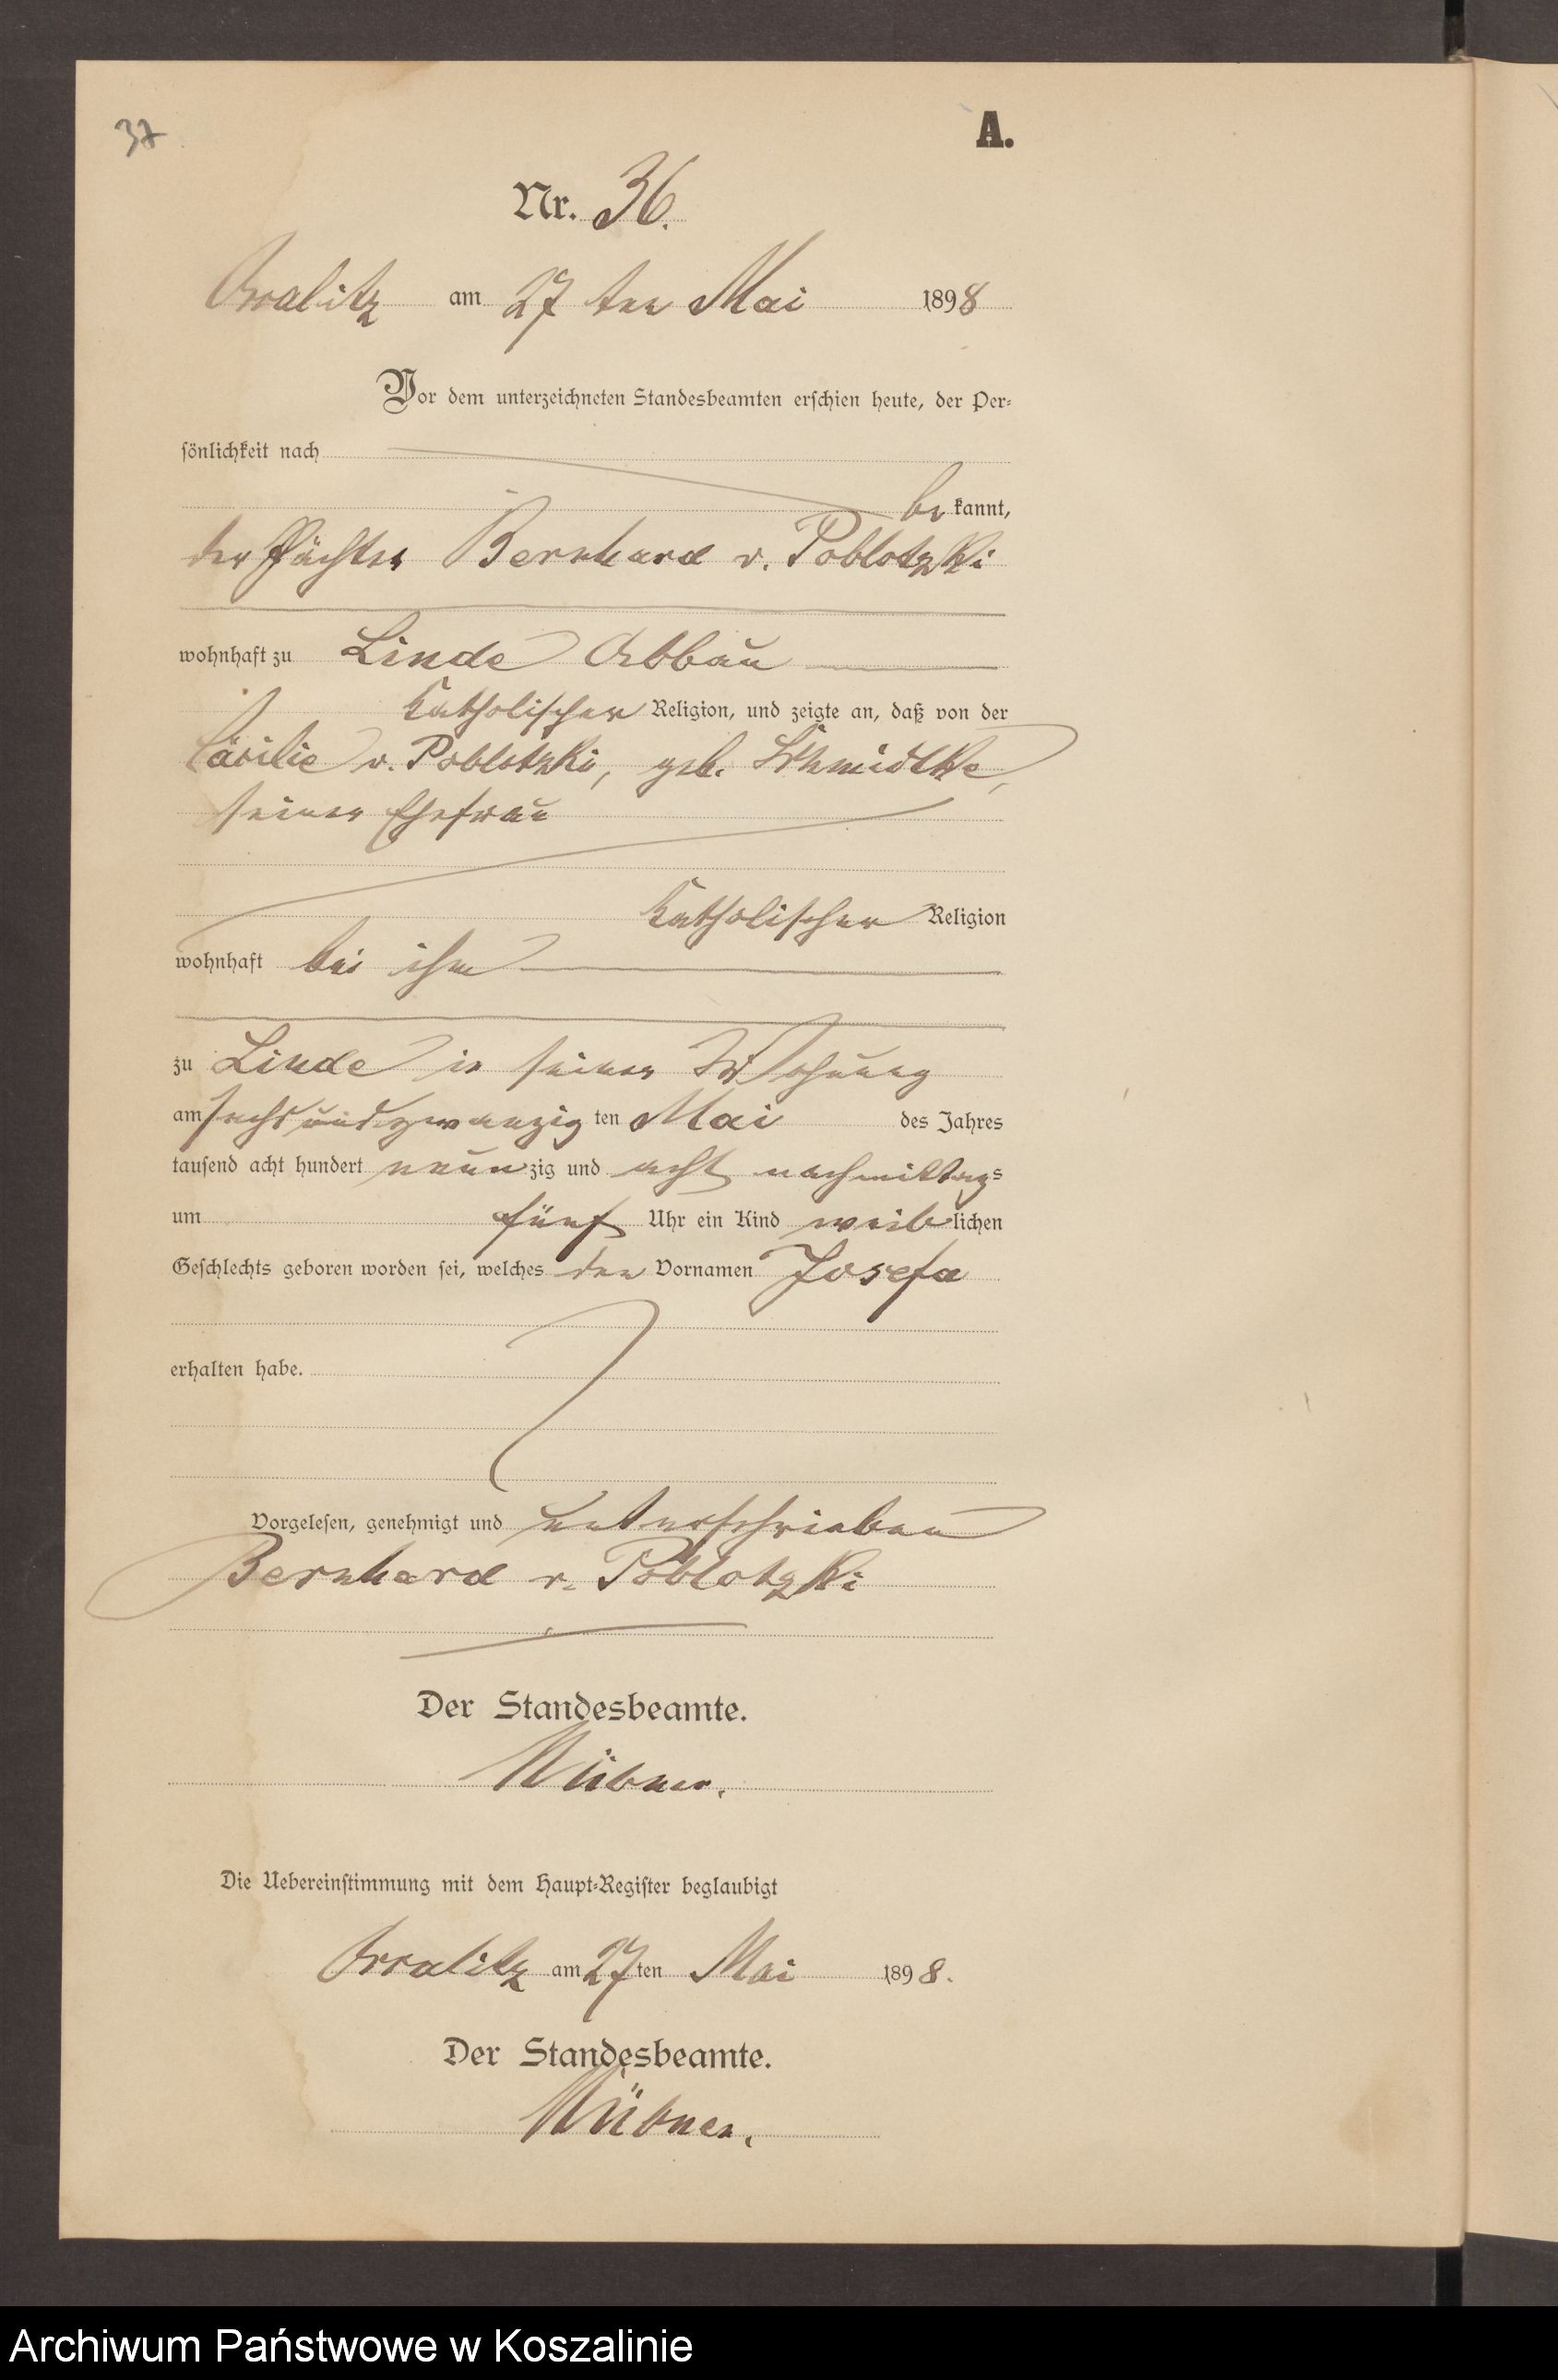 37
A.
Nr. 36.
am 27 ten Mai 1898
Vor dem unterzeichneten Standesbeamten erschien heute, der Per-
sönlichkeit nach
be kannt,
der Pächter Bernhard v. Poblotzki
wohnhaft zu Linde Abbau
katholischer Religion, und zeigte an, daß von der
Cäcilie v. Poblotzki, geb. Schmidtke,
seiner Ehefrau
katholischer Religion
wohnhaft bei ihm
zu Linde in seiner Wohnung
am sechsundzwanzig ten Mai des Jahres
tausend acht hundert neunzig und acht nachmittags
um fünf Uhr ein Kind weiblichen
Geschlechts geboren worden sei, welches den Vornamen Josefa
erhalten habe.
Vorgelesen, genehmigt und unterschrieben
Bernhard v. Poblotzki
Der Standesbeamte.
Die Uebereinstimmung mit dem Haupt-Register beglaubigt
am 27ten Mai 1898.
Der Standesbeamte.
Archiwum Państwowe w Koszalinie